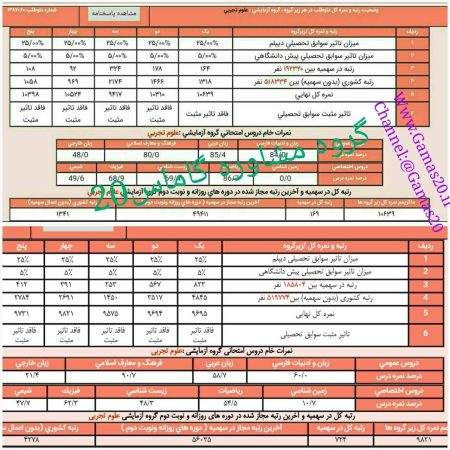 وضعیت رتبه و نمره کل داوطلب در هر زیر گروه ، گروه آزمایشی: علوم تجربی مشاهده پاسخنامه
ردیف رتبه و نمره کل /زیرگروه یک دو سه چهار پنج
۱ میزان تاثیر سوابق تحصیلی دیپلم ۲۵/۰۰% ۲۵/۰۰% ۲۵/۰۰% ۲۵/۰۰% ۲۵/۰۰%
میزان تاثیر سوابق تحصیلی پیش دانشگاهی ۵/۰۰% ۵/۰۰% ۵/۰۰% ۵/۰۰% ۵/۰۰%
رتبه در سهمیه بین ۱۹۲۳۲۰ نفر ۱۶۴ ۱۷۸ ۳۲۴ ۹۲ ۱۰۸
رتبه کشوری (بدون سهمیه) بین ۵۱۸۳۳۴ نفر ۱۳۱۸ ۲۱۷۴ ۱۴۶۶ ۹۶۹ ۱۰۵۸
نمره کل نهایی ۱۰۶۳۹ ۱۰۳۱۰ ۹۴۱۷ ۱۰۵۲۴ ۱۰۳۹۸
تاثیر مثبت سوابق تحصیلی فاقد تاثیر مثبت فاقد تاثیر مثبت فاقد تاثیر مثبت
نمرات خام دروس امتحانی گروه آزمایشی :علوم تجربی
زبان و ادبیات فارسی زبان عربی فرهنگ و معارف اسلامی زبان خارجی
درصد نمره 84/0 85/4 80/0 48/0
درصد نمره درس 0/0 68/9 49/6
رتبه کل در سهمیه و آخرین رتبه مجاز شده در دوره های روزانه و نوبت دوم گروه آزمایشی علوم تجربی
۱۰۶۳۹ ۱۶۹ ۴۹۴۱۱ ۱۳۴۱
گروه مشاوره گاماس20
Www.Gamas20.ir
Channel:@Gamas20
ردیف رتبه و نمره کل /زیرگروه یک دو سه چهار پنج
1 میزان تاثیر سوابق تحصیلی دیپلم ۲۵% ۲۵% ۲۵% ۲۵% ۲۵%
2 میزان تاثیر سوابق تحصیلی پیش دانشگاهی ۵% ۵% ۵% ۵% ۵%
3 رتبه در سهمیه بین ۱۸۵۸۰۴ نفر ۸۳۳ ۵۶۷ ۲۳۳ ۳۹۱ ۴۱۲
4 رتبه کشوری (بدون سهمیه) بین ۵۱۹۷۷۴ نفر ۴۸۴۵ ۳۵۱۷ ۱۴۵۰ ۲۶۹۱ ۲۷۸۴
5 نمره کل نهایی ۹۶۹۵ ۹۶۹۴ ۹۵۷۵ ۹۸۲۱ ۹۷۳۱
6 تاثیر مثبت سوابق تحصیلی فاقد تاثیر مثبت فاقد تاثیر مثبت فاقد تاثیر مثبت فاقد تاثیر مثبت فاقد تاثیر مثبت
نمرات خام دروس امتحانی گروه آزمایشی :علوم تجربی
دروس عمومی زبان و ادبیات فارسی زبان عربی فرهنگ و معارف اسلامی زبان خارجی
درصد نمره درس ۶۰/۰ ۵۸/۷ ۹۰/۷ ۲۱/۴
دروس اختصاصی زمین شناسی ریاضیات زیست شناسی فیزیک شیمی
درصد نمره درس ۱۰/۷ ۵۴/۵ ۴۸/۳ ۶۲/۳ ۴۷/۷
رتبه کل در سهمیه و آخرین رتبه مجاز شده در دوره های روزانه و نوبت دوم گروه آزمایشی علوم تجربی
رتبه کل در سهمیه رتبه کشوری (بدون اعمال
۹۸۲۱ ۷۲۴ ۵۶۰۳۵ ۴۲۷۸